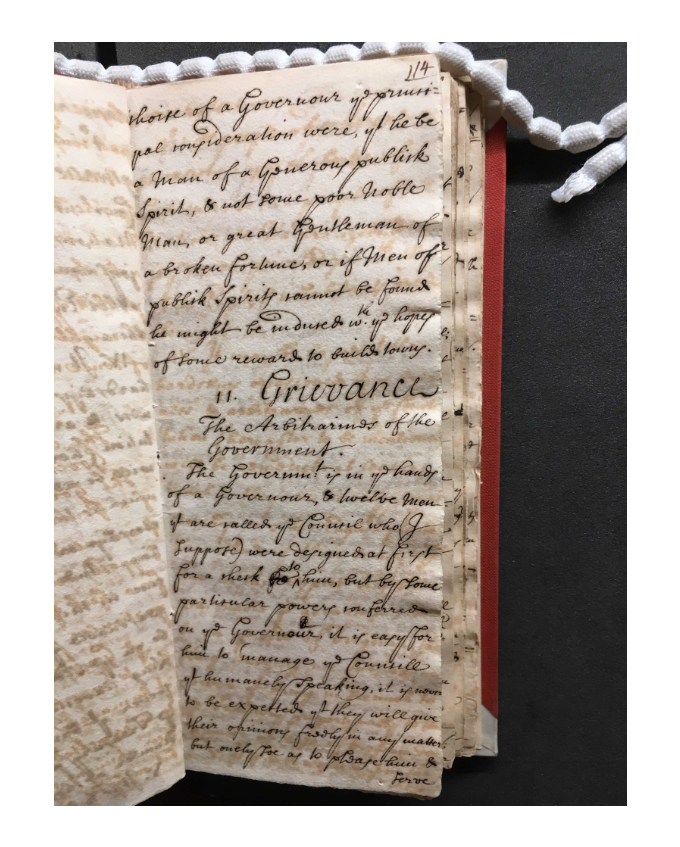 114
choise of a Governour yᵉ princi=
pal consideration were, yᵗ he be
a Man of a Generous publick
Spirit, & not some poor Noble
Man, or great Gentleman of
a broken fortune, or if Men of
publick Spirits cannot be found
he might be induced wᵗʰ yᵉ hopes
of some reward to build towns.
11. Grievance
The Arbitrarines of the
Government.
The Governmᵗ is in yᵉ hands
of a Governour, & twelve Men
yᵗ are called yᵉ Council who (I
suppose) were designed at first
for a check to him, but by some
particular powers conferred
on yᵉ Governour, it is easy for
him to manage yᵉ Councill
yᵗ humanely speaking, it is
to be expected yᵗ they will give
their opinions freely in any matter
but onely soe as to please him &
serve